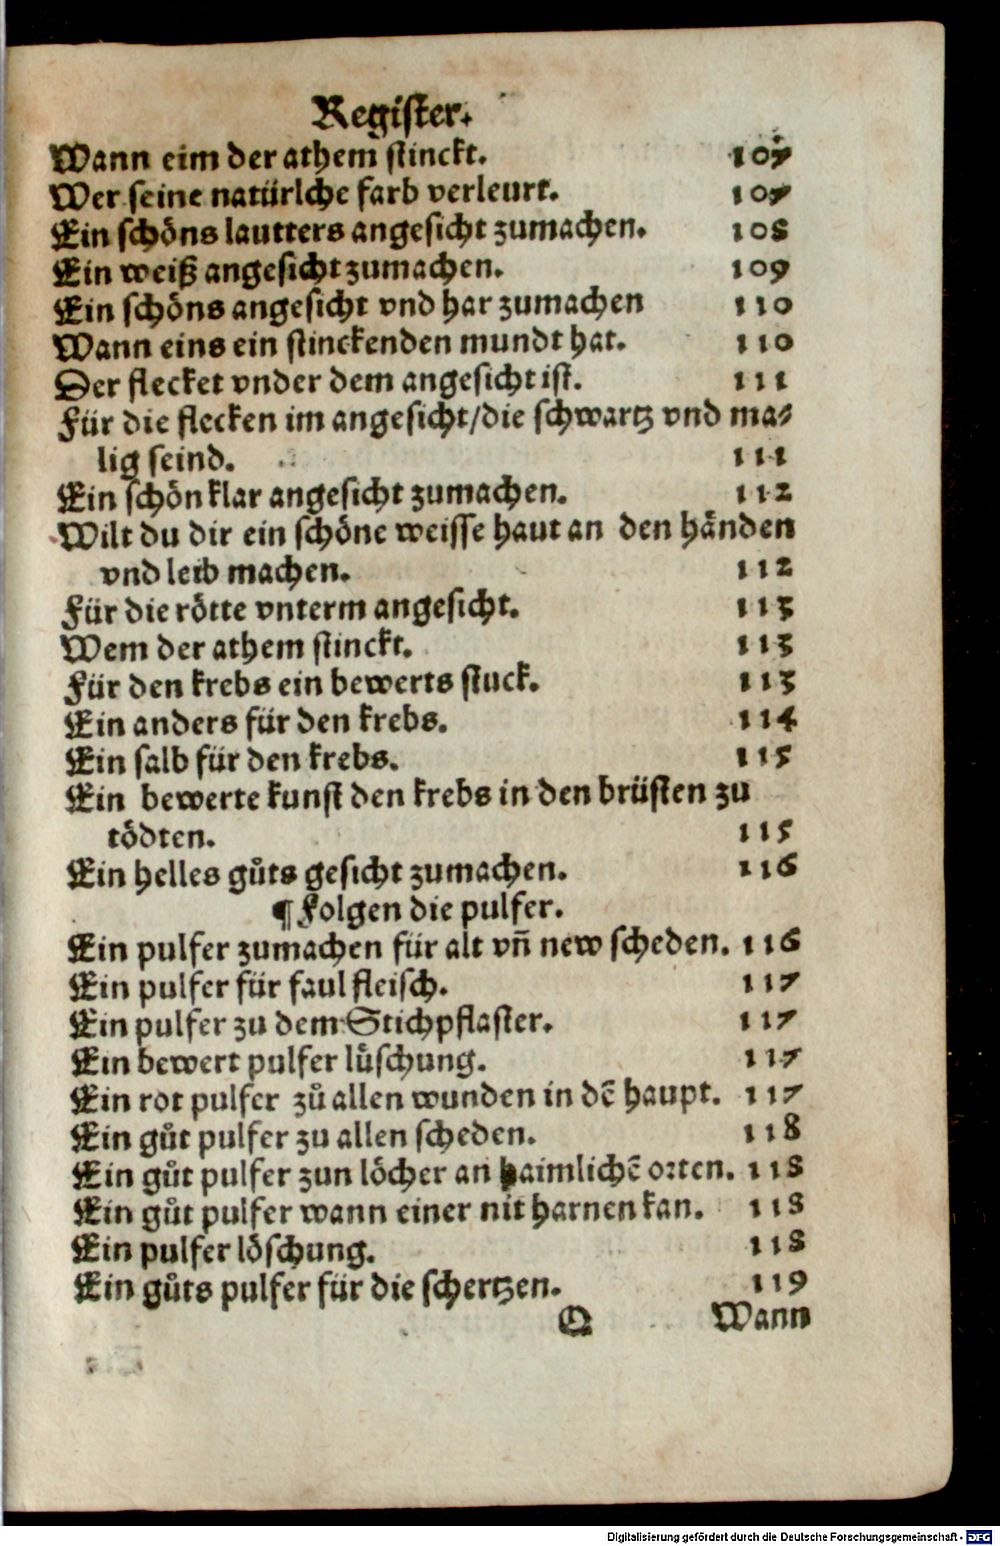 Register.
Wann eim der athem stinckt. 107
Wer seine natürlche farb verleurt. 107
Ein schöns lautters angesicht zumachen. 108
Ein weiß angesicht zumachen. 109
Ein schöns angesicht vnd har zumachen 110
Wann eins ein stinckenden mundt hat. 110
Der flecket vnder dem angesicht ist. 111
Für die flecken im angesicht/die schwartz vnd ma⸗
lig seind. 111
Ein schön klar angesicht zumachen. 112
Wilt du dir ein schöne weisse haut an den hånden
vnd leib machen. 112
Für die rötte vnterm angesicht. 113
Wem der athem stinckt. 113
Für den krebs ein bewerts stuck. 113
Ein anders für den krebs. 114
Ein salb für den krebs. 115
Ein bewerte kunst den krebs in den brüsten zu
tödten. 115
Ein helles gůts gesicht zumachen. 116
¶ Folgen die pulfer.
Ein pulfer zumachen für alt vñ new scheden. 116
Ein pulfer für faul fleisch. 117
Ein pulfer zu dem Stichpflaster. 117
Ein bewert pulfer lüschung. 117
Ein rot pulfer zů allen wunden in dē haupt. 117
Ein gůt pulfer zu allen scheden. 118
Ein gůt pulfer zun löcher an haimlichē orten. 118
Ein gůt pulfer wann einer nit harnen kan. 118
Ein pulfer löschung. 118
Ein gůts pulfer für die schertzen. 119
Q Wann
Digitalisierung gefördert durch die Deutsche Forschungsgemeinschaft - DFG